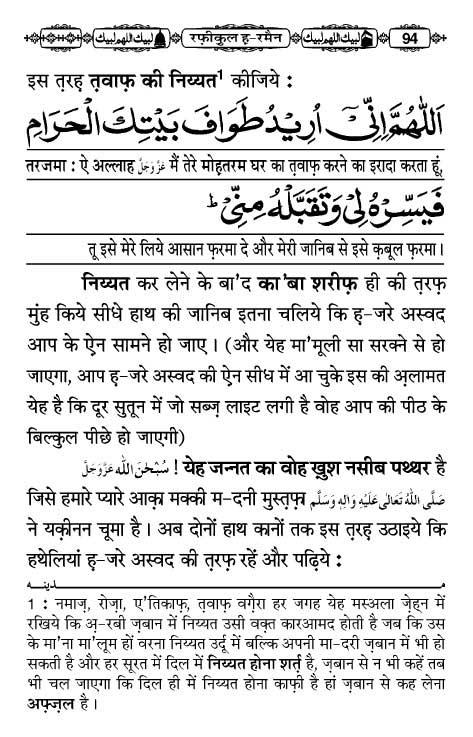 لبيك اللهم لبيك रफ़ीकुल ह-रमैन لبيك اللهم لبيك 94
इस त़रह़ त़वाफ़ की निय्यत¹ कीजिये :
اَللّٰهُمَّ اِنِّىْٓ اُرِيْدُ طَوَافَ بَيْتِكَ الْحَرَامِ
तरजमा : ऐ अल्लाह عَزَّوَجَلَّ मैं तेरे मोह़तरम घर का त़वाफ़ करने का इरादा करता हूं,
فَيَسِّرْهُ لِىْ وَتَقَبَّلْهُ مِنِّىْ ؕ
तू इसे मेरे लिये आसान फ़रमा दे और मेरी जानिब से इसे क़बूल फ़रमा।
निय्यत कर लेने के बा'द का'बा शरीफ़ ही की त़रफ़
मुंह किये सीधे हाथ की जानिब इतना चलिये कि ह़-जरे अस्वद
आप के ऐन सामने हो जाए। (और येह मा'मूली सा सरक्ने से हो
जाएगा, आप ह़-जरे अस्वद की ऐन सीध में आ चुके इस की अ़लामत
येह है कि दूर सुतून में जो सब्ज़ लाइट लगी है वोह आप की पीठ के
बिल्कुल पीछे हो जाएगी)
سُبْحٰنَ اللّٰه عَزَّوَجَلَّ ! येह जन्नत का वोह ख़ुश नसीब पथ्थर है
जिसे हमारे प्यारे आक़ा मक्की म-दनी मुस्त़फ़ा صَلَّى اللّٰهُ تَعَالٰى عَلَيْهِ وَاٰلِهٖ وَسَلَّم
ने यक़ीनन चूमा है। अब दोनों हाथ कानों तक इस त़रह़ उठाइये कि
हथेलियां ह़-जरे अस्वद की त़रफ़ रहें और पढ़िये :
مدينه
1 : नमाज़, रोज़ा, ए'तिकाफ़, त़वाफ़ वग़ैरा हर जगह येह मस्अला ज़ेह्न में
रखिये कि अ़-रबी ज़बान में निय्यत उसी वक़्त कारआमद होती है जब कि उस
के मा'ना मा'लूम हों वरना निय्यत उर्दू में बल्कि अपनी मा-दरी ज़बान में भी हो
सकती है और हर सूरत में दिल में निय्यत होना शर्त़ है, ज़बान से न भी कहें तब
भी चल जाएगा कि दिल ही में निय्यत होना काफ़ी है हां ज़बान से कह लेना
अफ़्ज़ल है।